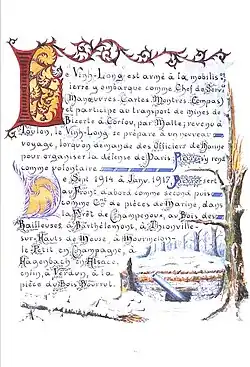 Le Vinh-Long est armé à la mobilis
Pierre y embarque comme Chef de Serv.
Manœuvres. Cartes. Montres. Compas)
et participe au transport de mines de
Bizerte à Corfou, par Malte; revenu à
Toulon, le Vinh-Long se prépare à un nouveau
voyage, lorsqu'on demande des Officiers de Marine
pour organiser la défense de Paris. y rené
comme volontaire
De Sept 1914 à Janv. 1917, sert
au Front, d'abord comme second puis
comme Cdt de pièces de Marine, dans
la Forêt de Champenoux, au Bois des
Railleuses, à Barthélemont, à Thionville
sur Hauts de Meuse, à Mourmelon
le Petit en Champagne, à
Hagenbach en Alsace
enfin, à Verdun, à la
pièce du Bois Bourrut.